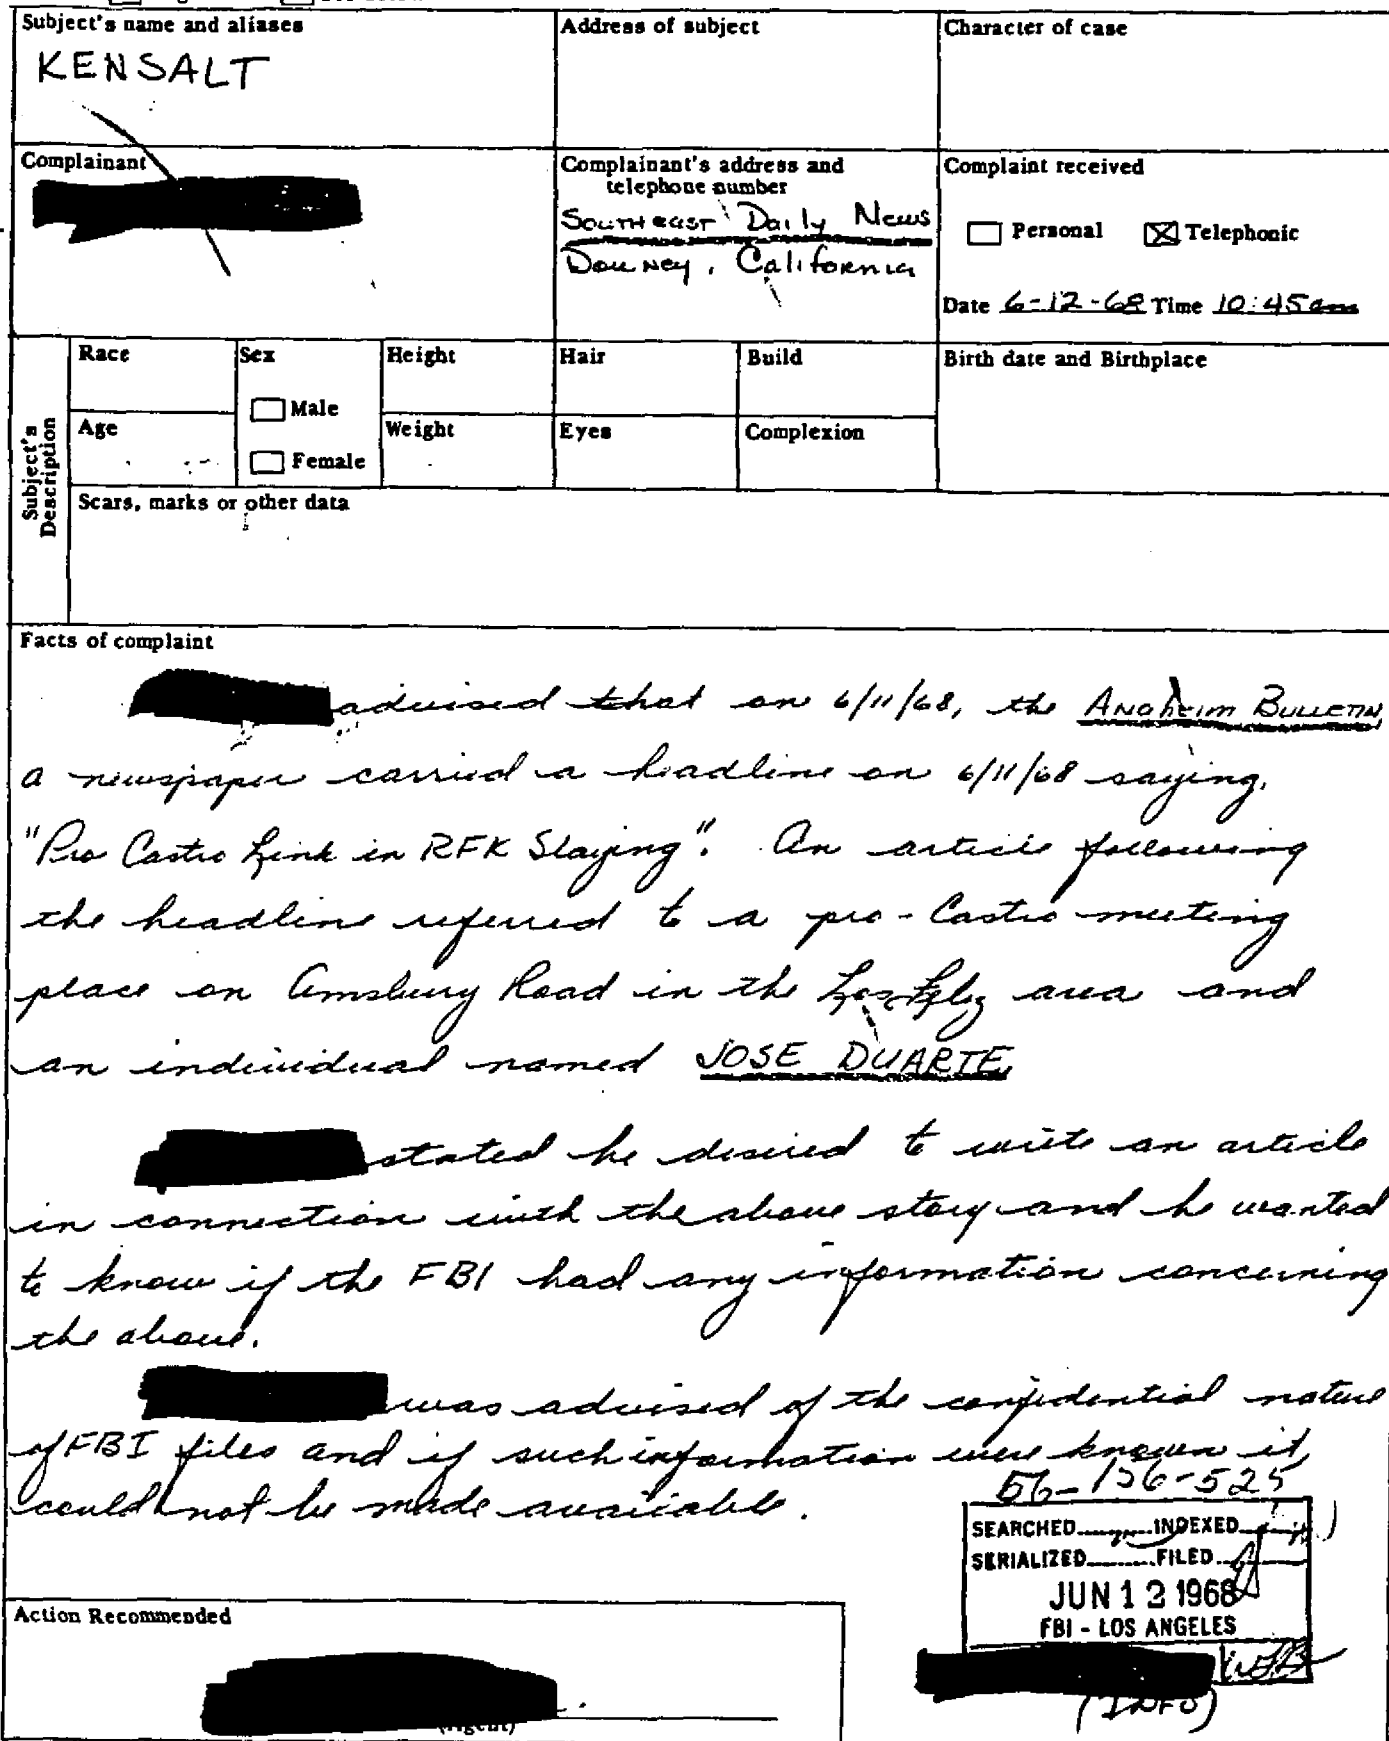 Subject's name and aliases
KENSALT
Address of subject
Character of case
Complainant
Complainant's address and
telephone number
Southeast Daily News
Downey, California
Complaint received
Personal
Telephonic
Date 6-12-68 Time 10:45 am
Subject's
Description
Race
Sex
Male
Female
Height
Hair
Build
Birth date and Birthplace
Age
Weight
Eyes
Complexion
Scars, marks or other data
Facts of complaint
advised that on 6/11/68, the Anaheim Bulletin,
a newspaper carried a headline on 6/11/68 saying,
"Pro Castro Link in RFK Slaying". An article following
the headline referred to a pro-Castro meeting
place on Amsbury Road in the Los Feliz area and
an individual named JOSE DUARTE.
stated he desired to write an article
in connection with the above story and he wanted
to know if the FBI had any information concerning
the above.
was advised of the confidential nature
of FBI files and if such information were known it
could not be made available.
56-156-525
SEARCHED INDEXED
SERIALIZED FILED
JUN 12 1968
FBI - LOS ANGELES
(INFO)
Action Recommended
(Agent)